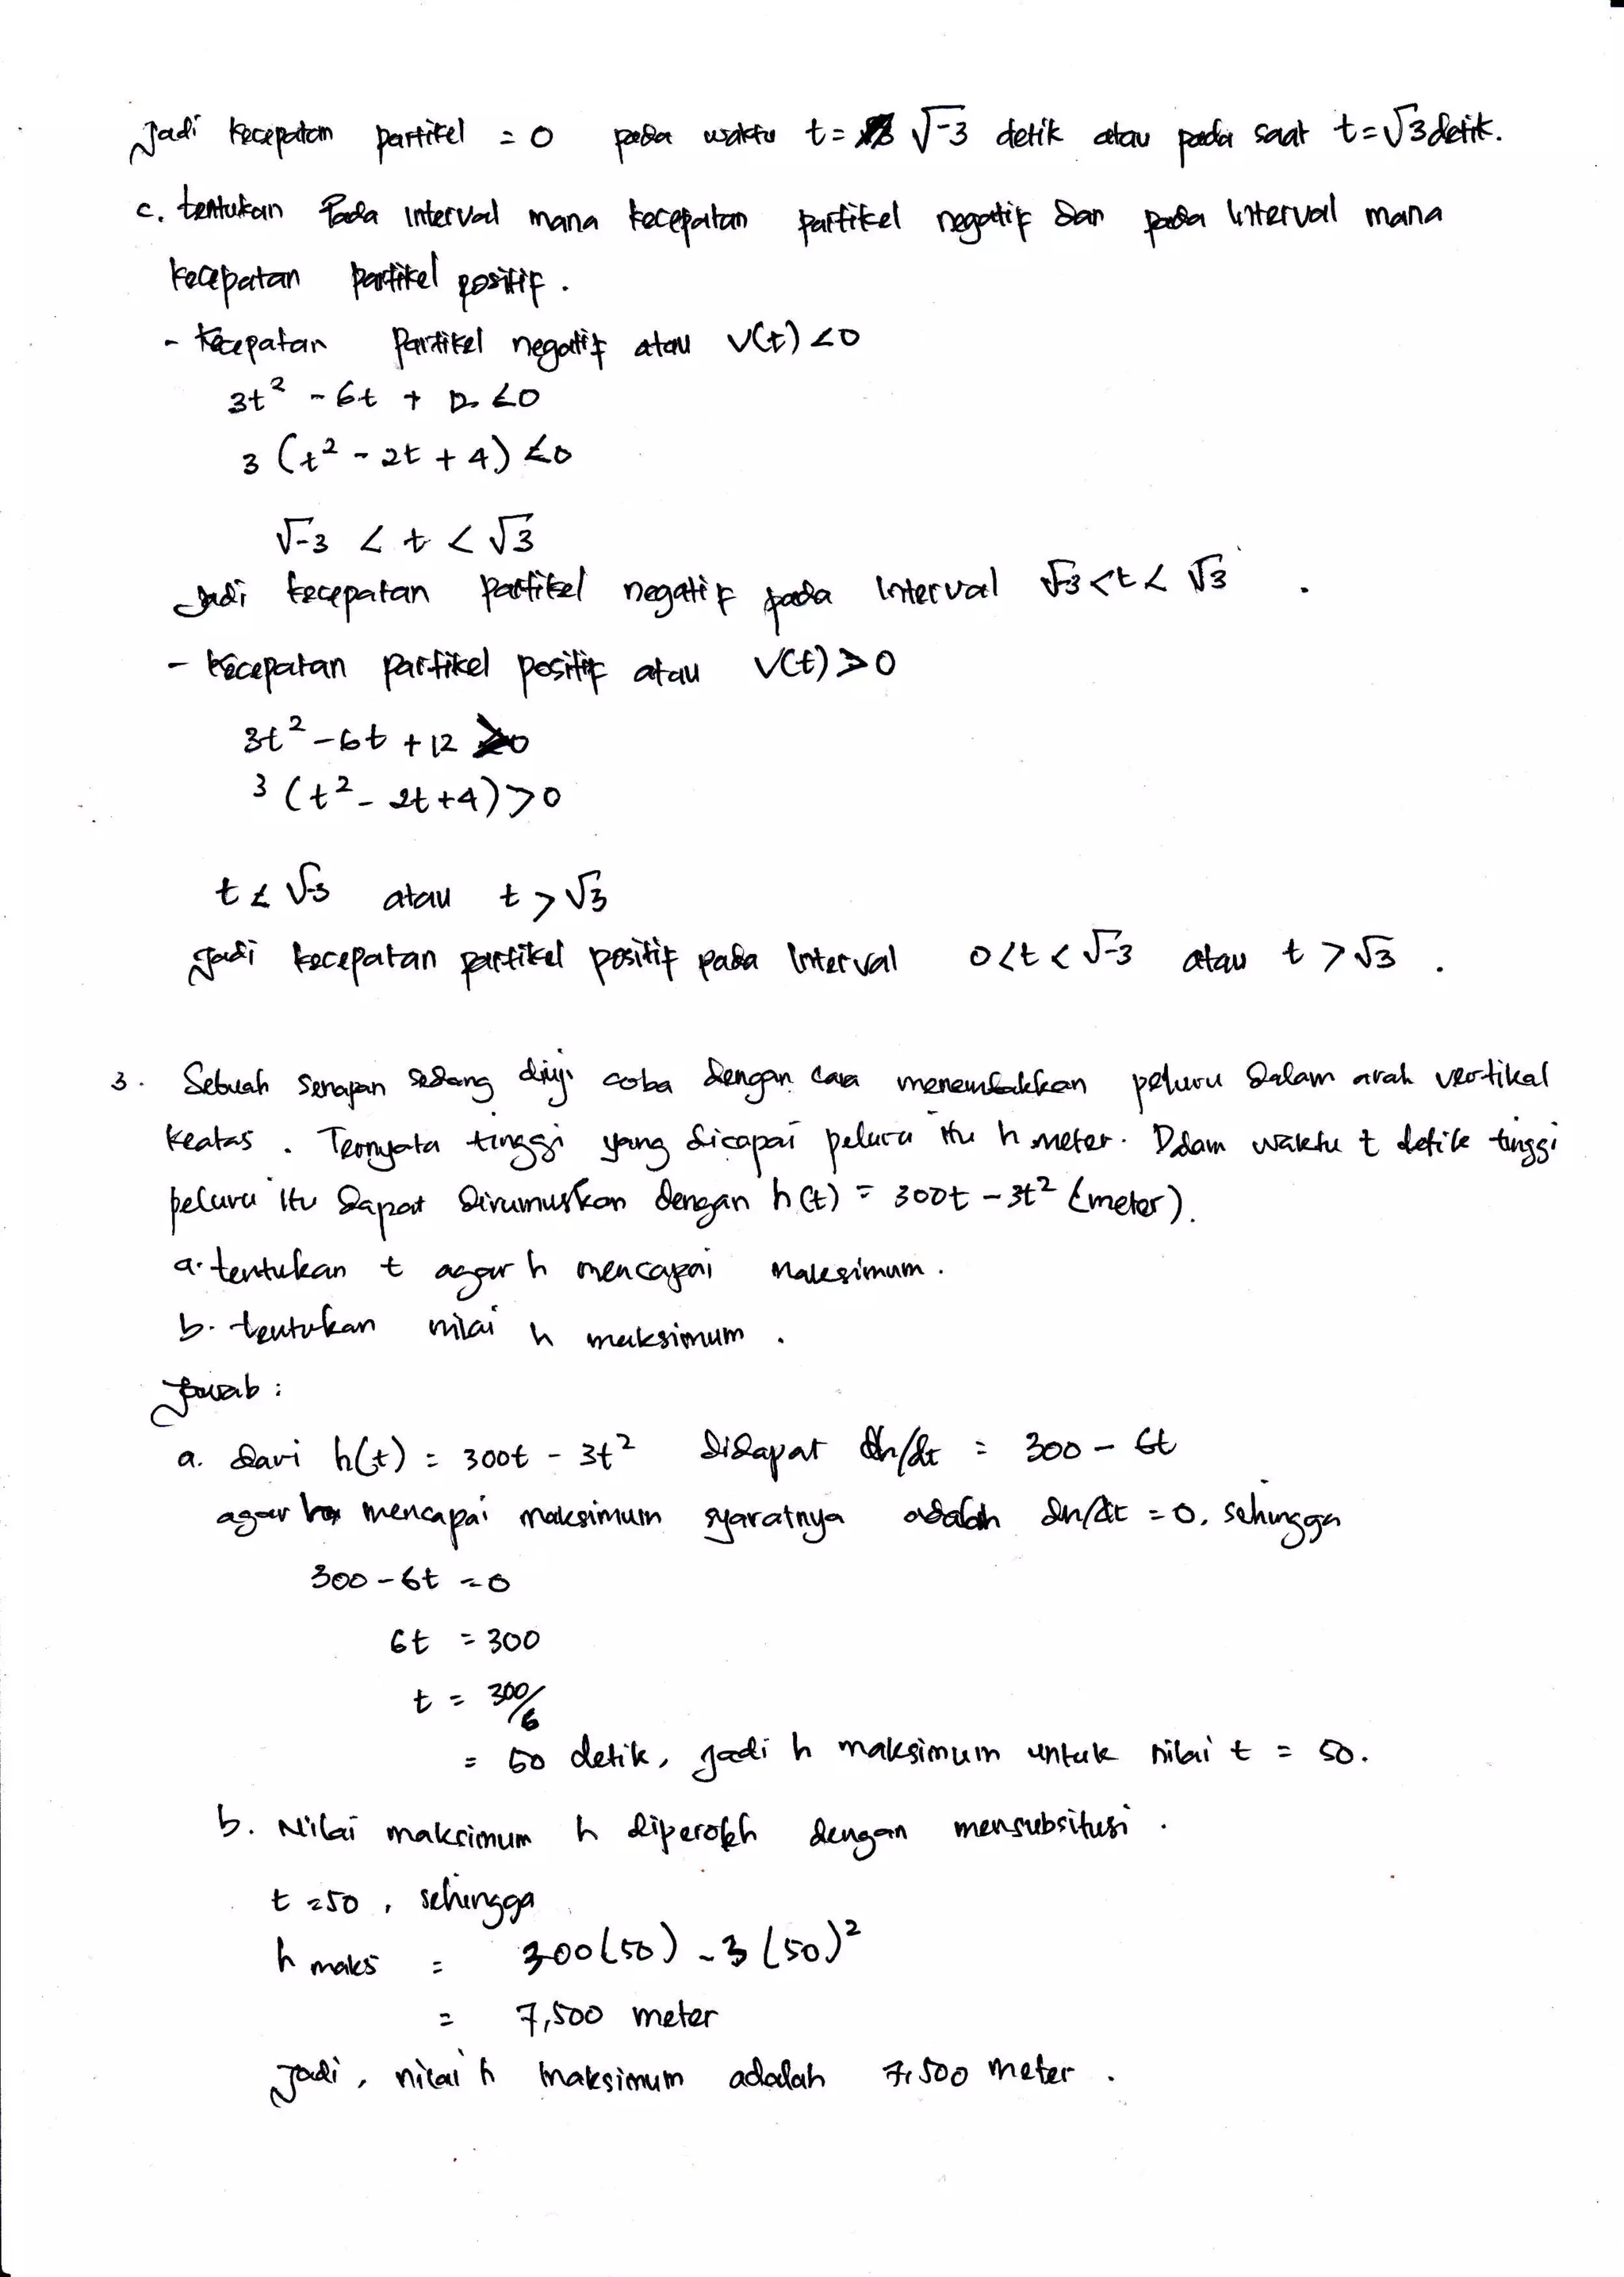 Jadi kecepatan partikel = 0 pada waktu t = √-3 detik atau pada saat t = √3 detik.
c. tentukan Pada interval mana kecepatan partikel negatif dan pada interval mana
kecepatan partikel positif .
- kecepatan Partikel negatif atau v(t) < 0
3t² - 6t + 12 < 0
3 (t² - 2t + 4) < 0
√-3 < t < √3
Jadi kecepatan partikel negatif pada interval √-3 < t < √3 .
- kecepatan partikel positif atau v(t) > 0
3t² - 6t + 12 > 0
3 (t² - 2t + 4) > 0
t < √-3 atau t > √3
Jadi kecepatan partikel positif pada interval 0 < t < √-3 atau t > √3 .
3. Sebuah senapan sedang diuji coba dengan cara menembakkan peluru dalam arah vertikal
keatas . Ternyata tinggi yang dicapai peluru itu h meter. Dalam waktu t detik tinggi
peluru itu dapat dirumuskan dengan h(t) = 300t - 3t² (meter).
a. tentukan t agar h mencapai maksimum .
b. tentukan nilai h maksimum .
Jawab :
a. dari h(t) = 300t - 3t² didapat dh/dt = 300 - 6t
agar h mencapai maksimum syaratnya adalah dh/dt = 0, sehingga
300 - 6t = 0
6t = 300
t = 300/6
= 50 detik, jadi h maksimum untuk nilai t = 50.
b. Nilai maksimum h diperoleh dengan mensubsitusi .
t = 50 , sehingga
h maks = 300(50) - 3 (50)²
= 7,500 meter
Jadi , nilai h maksimum adalah 7,500 meter .